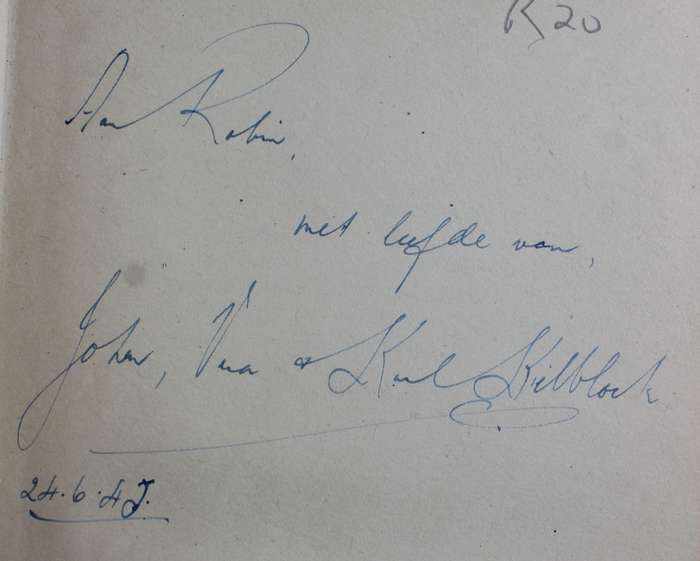 R20
Aan Robin,
met liefde van,
John, Vera & Karl Kilblock
24.6.47.